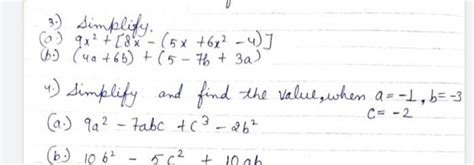 3.) Simplify.
(a.) 9x² + [8x - (5x + 6x² - 4)]
(b.) (4a + 6b) + (5 - 7b + 3a)
4.) Simplify and find the value, when a = -1, b = -3
c = -2
(a.) 9a² - 7abc + c³ - 2b²
(b.) 10b² - 5c² + 10ab